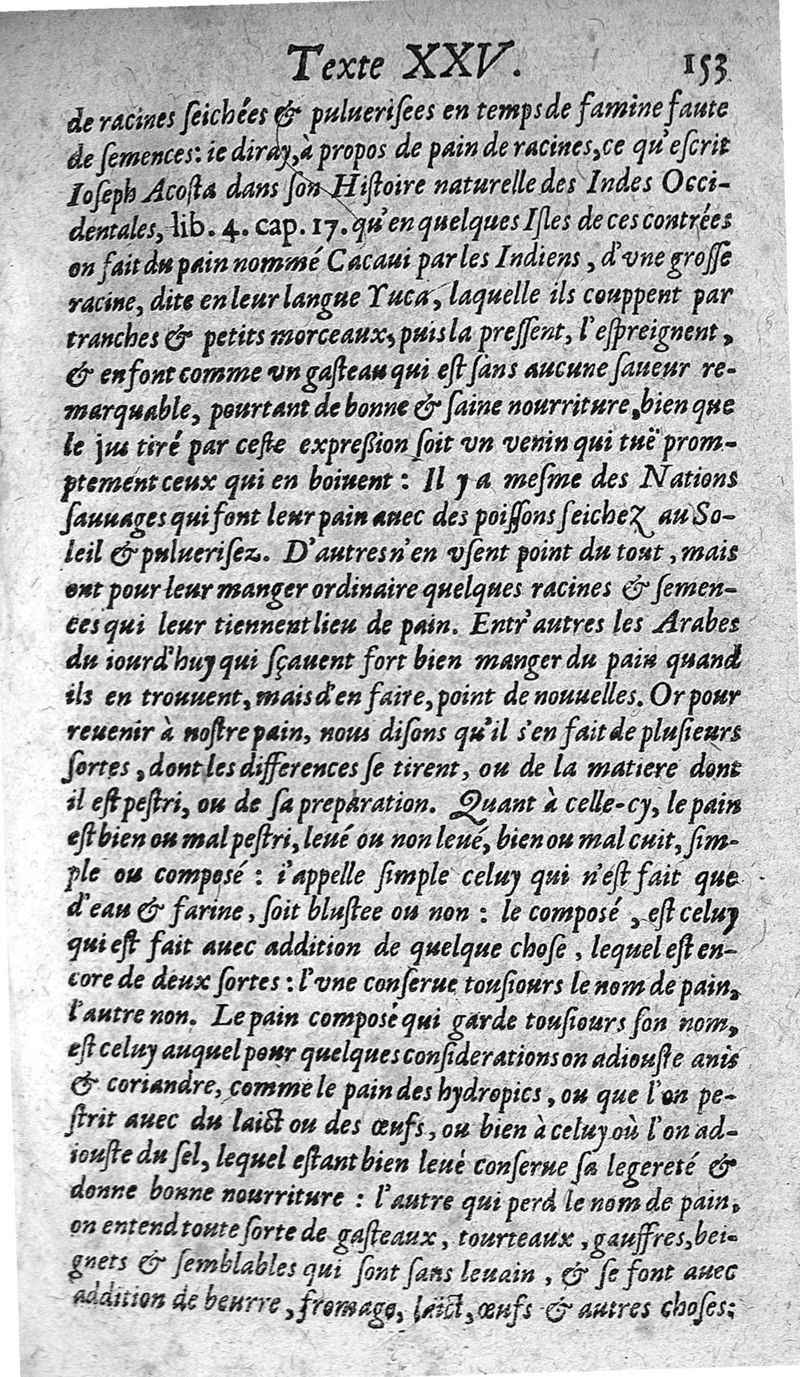 Texte XXV. 153
de racines ſeichées & pulueriſees en temps de famine faute
de ſemences: ie diray, à propos de pain de racines, ce qu'eſcrit
Ioſeph Acoſta dans ſon Hiſtoire naturelle des Indes Occi-
dentales, lib. 4. cap. 17. qu'en quelques Iſles de ces contrées
on fait du pain nommé Cacaui par les Indiens, d'vne groſſe
racine, dite en leur langue Yuca, laquelle ils couppent par
tranches & petits morceaux, puis la preſſent, l'eſpreignent,
& en font comme vn gaſteau qui eſt ſans aucune ſaueur re-
marquable, pourtant de bonne & ſaine nourriture, bien que
le jus tiré par ceſte expreßion ſoit vn venin qui tuë prom-
ptement ceux qui en boiuent : Il y a meſme des Nations
ſauuages qui font leur pain auec des poiſſons ſeichez au So-
leil & puluerisez. D'autres n'en vſent point du tout, mais
ont pour leur manger ordinaire quelques racines & ſemen-
ces qui leur tiennent lieu de pain. Entr'autres les Arabes
du iourd'huy qui ſçauent fort bien manger du pain quand
ils en trouuent, mais d'en faire, point de nouuelles. Or pour
reuenir à noſtre pain, nous diſons qu'il s'en fait de pluſieurs
ſortes, dont les differences ſe tirent, ou de la matiere dont
il eſt peſtri, ou de ſa preparation. Quant à celle-cy, le pain
eſt bien ou mal peſtri, leué ou non leué, bien ou mal cuit, ſim-
ple ou composé : i'appelle ſimple celuy qui n'eſt fait que
d'eau & farine, ſoit bluſtee ou non : le composé, eſt celuy
qui eſt fait auec addition de quelque choſe, lequel eſt en-
core de deux ſortes : l'vne conſerue touſiours le nom de pain,
l'autre non. Le pain composé qui garde touſiours ſon nom,
eſt celuy auquel pour quelques conſiderations on adiouſte anis
& coriandre, comme le pain des hydropics, ou que l'on pe-
ſtrit auec du laict ou des œufs, ou bien à celuy où l'on ad-
iouſte du ſel, lequel eſtant bien leué conſerue ſa legereté &
donne bonne nourriture : l'autre qui perd le nom de pain,
on entend toute ſorte de gaſteaux, tourteaux, gauffres, bei-
gnets & ſemblables qui ſont ſans leuain, & ſe font auec
addition de beurre, fromage, laict, œufs & autres choſes;